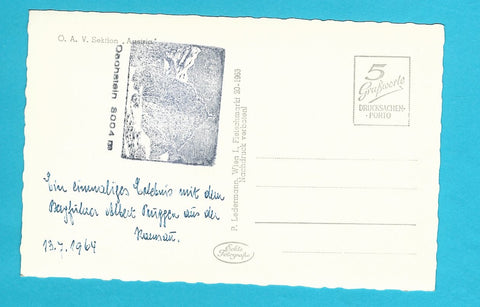 O. A. V. Sektion „Austria“
Dachstein 3004 m
5
Grußworte
DRUCKSACHEN-
PORTO
P. Ledermann, Wien I., Fleischmarkt 20-1963
Nachdruck verboten!
Echte
Fotografie
Ein einmaliges Erlebnis mit dem
Bergführer Albert Prugger aus der
Ramsau.
13.7.1964